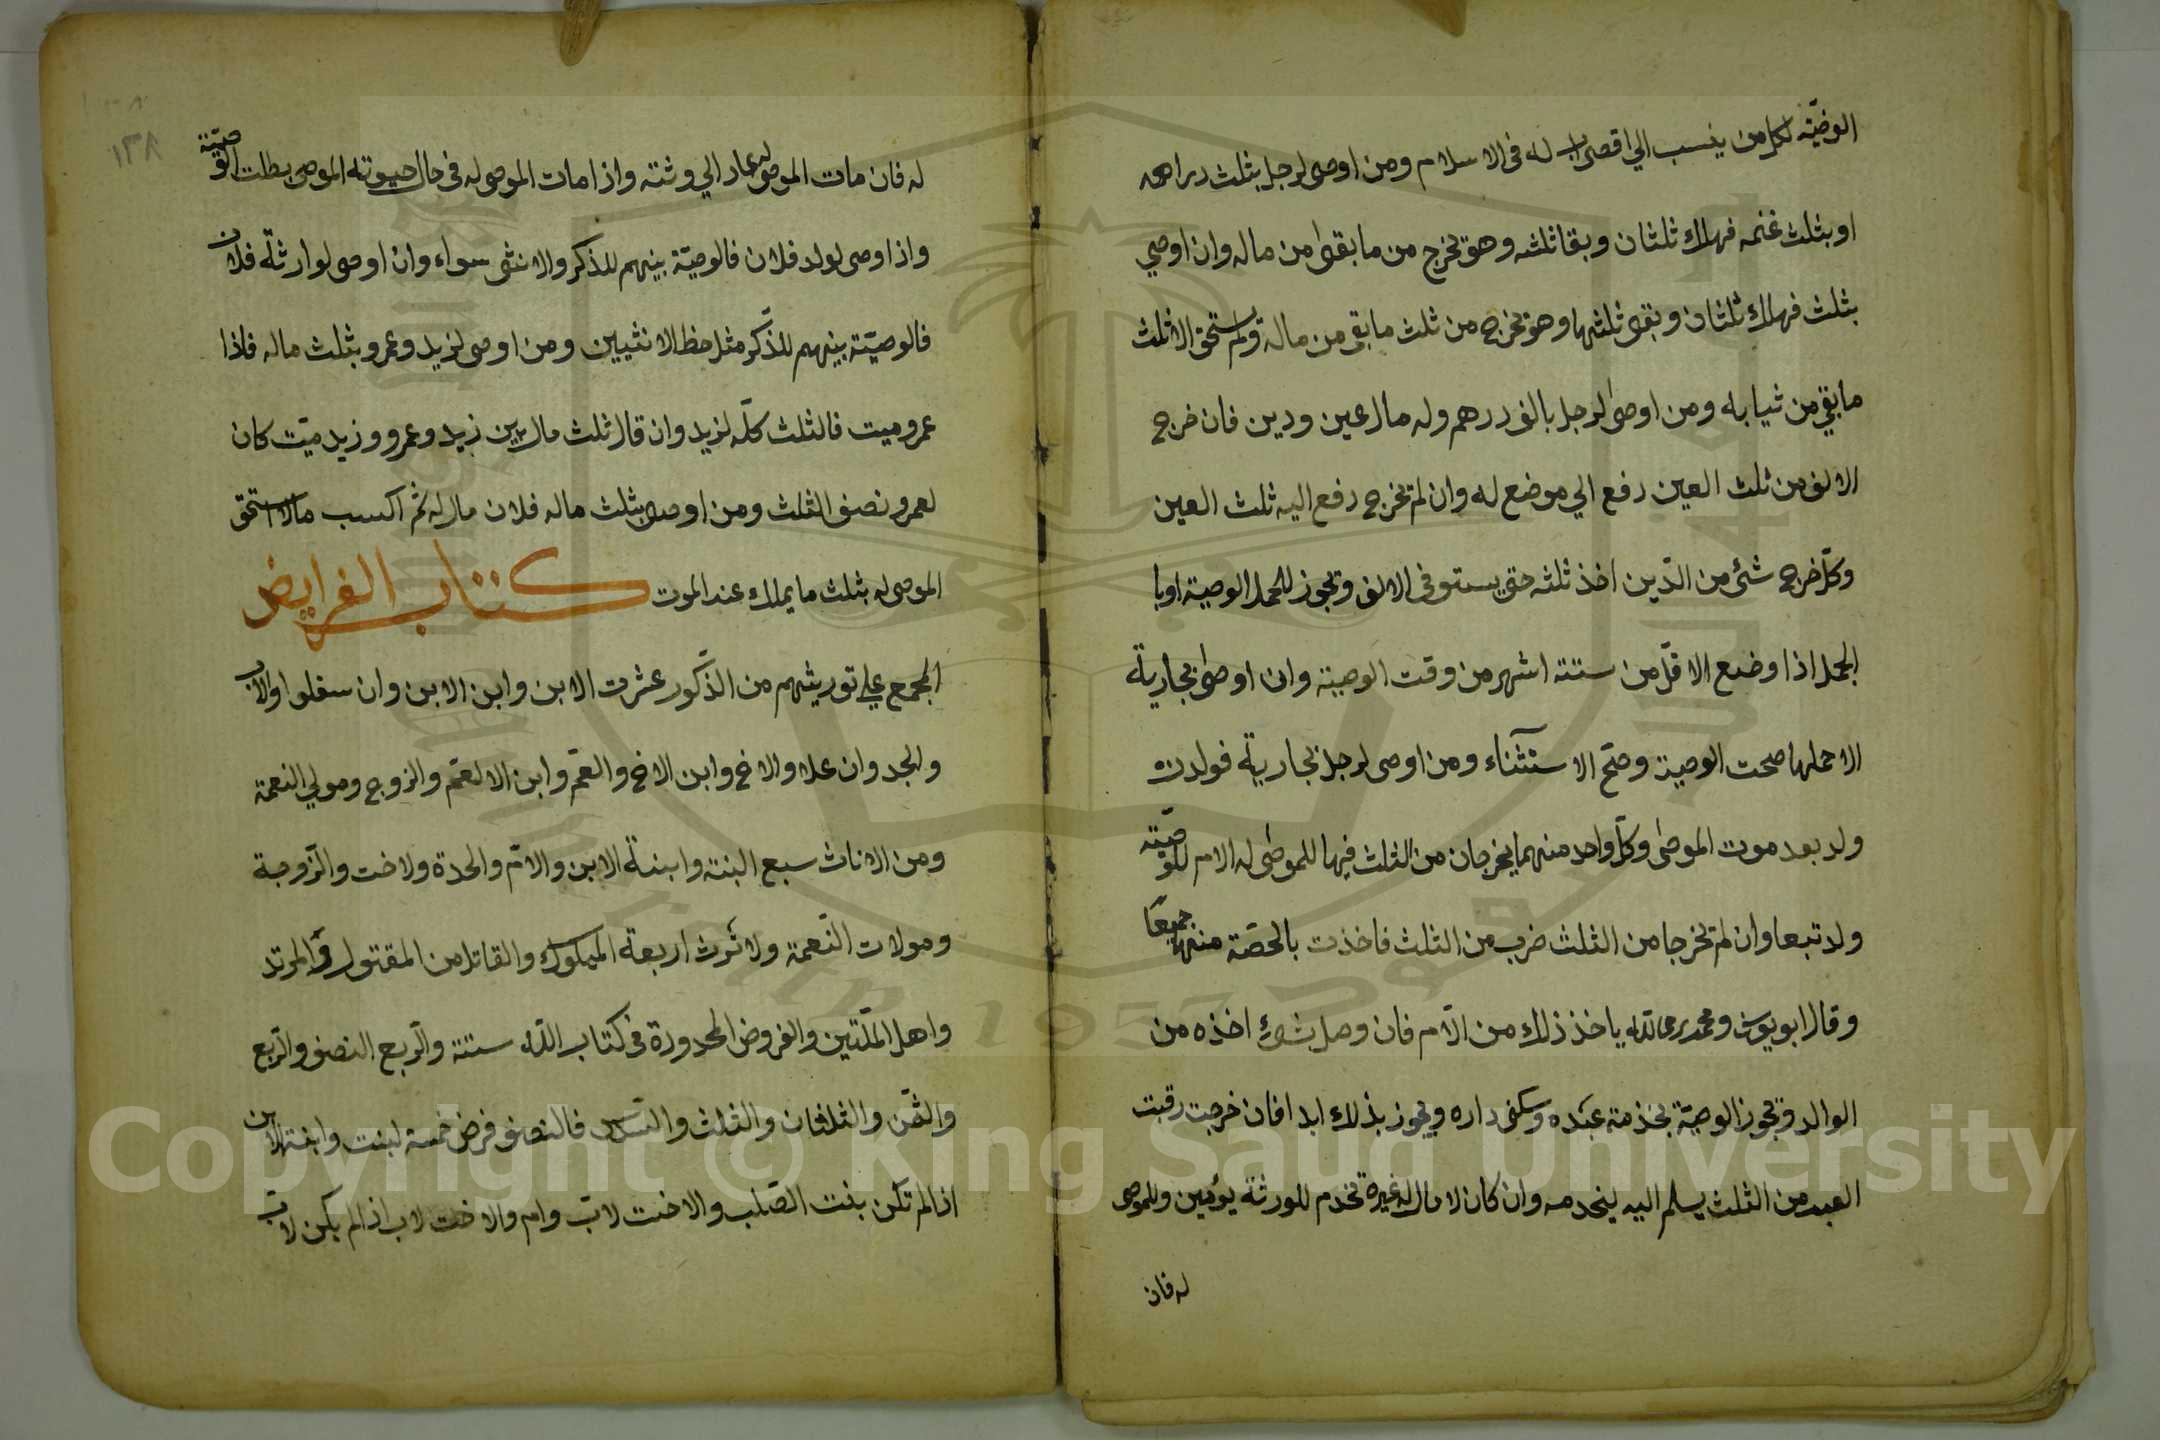 الوصيّة لكل من ينسب الي اقصى اب له فى الاسلام ومن اوصى لرجل بثلث دراهمه
او بثلث غنمه فهلك ثلثان وبقا ثلثه وهو يخرج من ما بقى من ماله وان اوصي
بثلث فهلك ثلثان وبقى ثلثها وهو يخرج من ثلث ما بقى من ماله ولم يستحق الا ثلث
ما بقي من ثيابه ومن اوصى لرجل بالف درهم وله مال عين ودين فان خرج
الالف من ثلث العين دفع الي موضع له وان لم يخرج دفع اليه ثلث العين
وكلّ خرج شئ من الدّين اخذ ثلثه حتى يستوفى الالف وتجوز للحمل الوصية اوبا
الحمل اذا وضع الاقلّ من ستة اشهر من وقت الوصية وان اوصى بجارية
الا حملها صحت الوصية وصحّ الاستثناء ومن اوصى لرجل بجارية فولدت
ولد بعد موت الموصى وكلّ واحد منهما يخرجان من الثلث فيها للموصى له الام للوصيّة
ولد تبعا وان لم يخرجا من الثلث ضرب من الثلث فاخذت بالحصّة منهما جميعًا
وقال ابو يوسف ومحمد رحمالله ياخذ ذلك من الامّ فان وصل شئ اخذه من
الوالد وتجوز الوصيّة بخذمة عبده وسكنى داره ويجوز بذلك ابدا فان خرجت رقبت
العبد من الثلث يسلم اليه ليخدمه وان كان لا مال له غيره تخدم للورثة يومين وللموصى
له فان
١٣٨
له فان مات الموصى له عاد الي وثته واذا مات الموصى له فى حال حيوته الموصى بطلت الوصيّة
واذا اوصى لولد فلان فالوصيّة بينهم للذكر والانثى سواء وان اوصى لوارثة فلان
فالوصيّة بينهم للذّكر مثل حظ الانثيين ومن اوصى لزيد وعمرو بثلث ماله فاذا
عمرو ميت فالثلث كلّه لزيد وان قال ثلث مال بين زيد وعمرو وزيد ميّت كان
لعمرو نصف الثلث ومن اوصى بثلث ماله فلان مال له ثم اكسب مالا استحق
الموصى له بثلث ما يملك عند الموت كتاب الفرايض
المجمع علي توريثهم من الذّكور عشرت الابن وابن الابن وان سفلوا والاب
والجد وان علا والاخ وابن الاخ والعمّ وابن العمّ والزوج ومولي النعمة
ومن الاناث سبع البنة وابنة الابن والامّ والحدة ولاخت والزّوجة
ومولات النّعمة ولا ترث اربعة المملوك والقاتل من المقتول والمرتد
واهل الملّتين والفروض المحدودة فى كتاب اللّه ستة والرّبع النصف والرّبع
والثّمن والثلثان والثلث والسّدس فالنصف فرض خمسة لبنت وابنة الابن
اذا لم تكن بنت الصّلب والاخت لابّ وام والاخت لاب اذا لم يكن لابّ